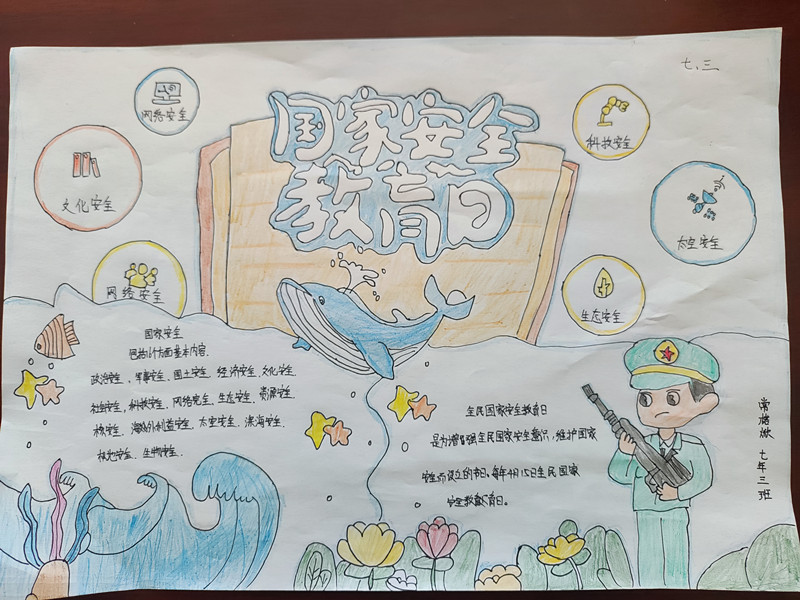 七、三
国家安全
教育日
网络安全
文化安全
网络安全
科技安全
太空安全
生态安全
国家安全
包括16个方面基本内容.
政治安全、军事安全、国土安全、经济安全、文化安全
社会安全,科技安全、网络安全、生态安全、资源安全
核安全、海外利益安全、太空安全、深海安全、
极地安全、生物安全.
全民国家安全教育日
是为增强全民国家安全意识,维护国家
安全而设立的节日。每年4月15日全民国家
安全教育日。
七年三班